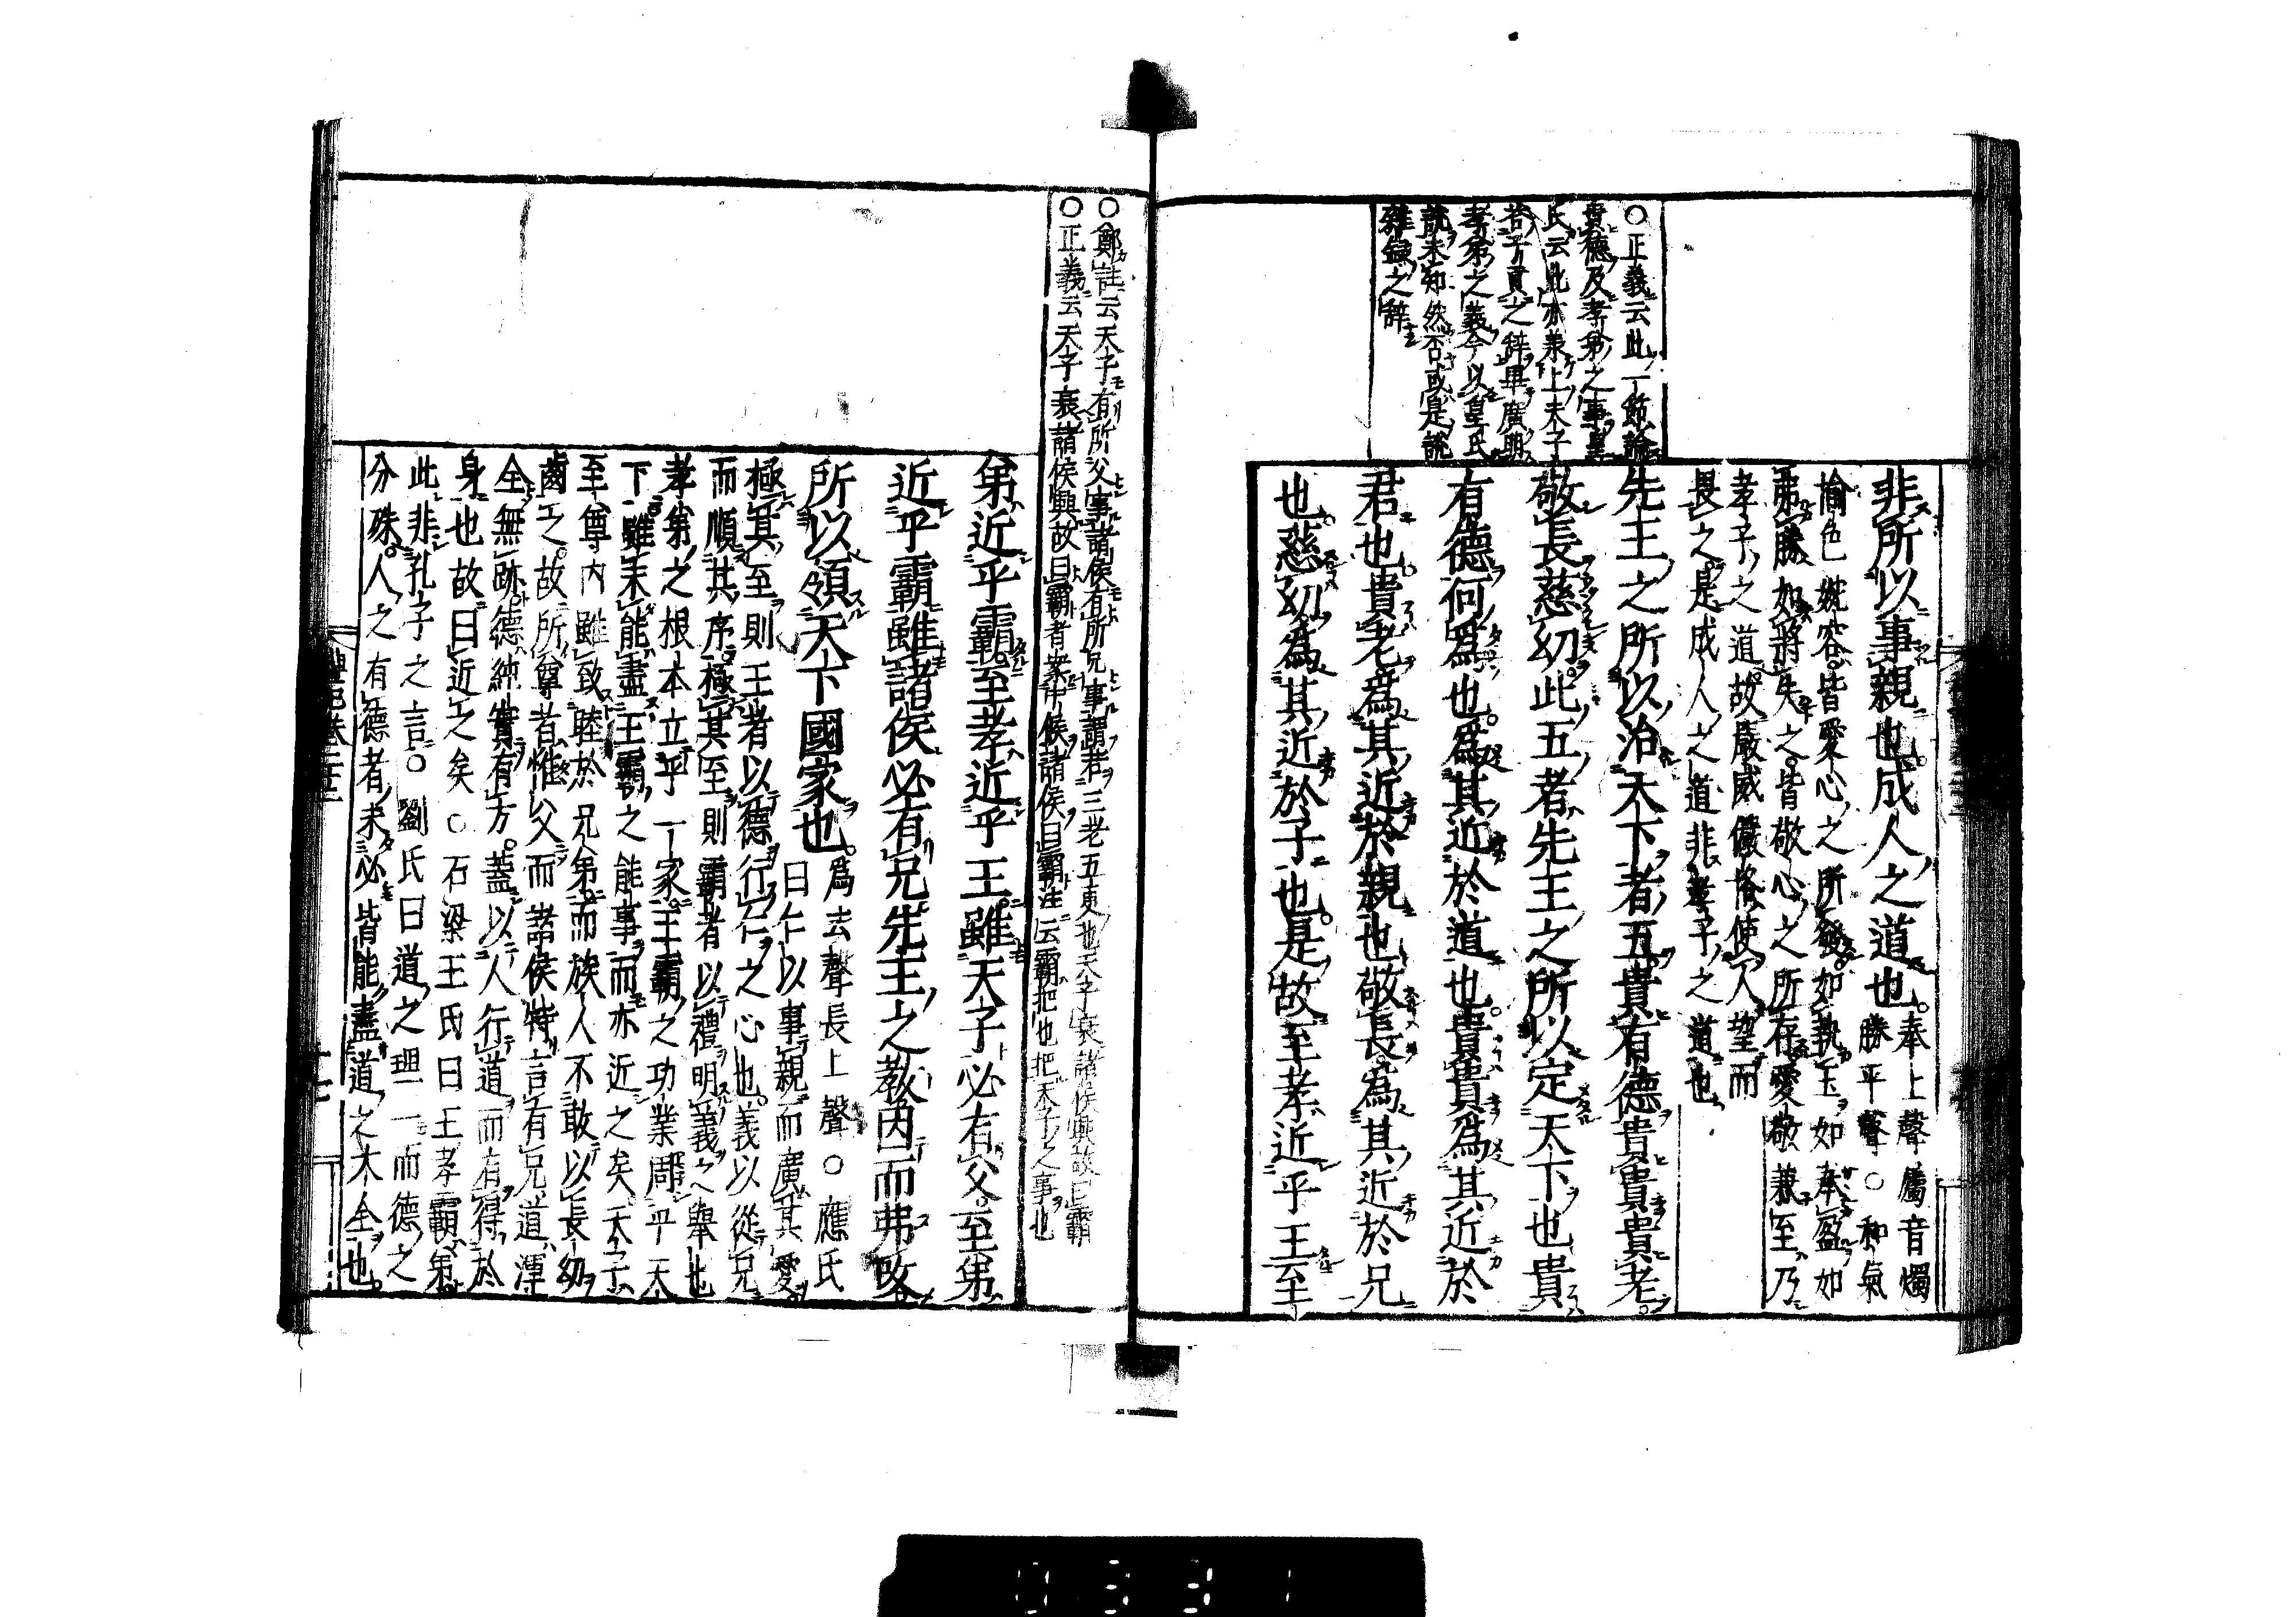 ○正義云此一節論
貴德及孝弟之事皇
氏云此亦承上夫子
答子貢之辭畢廣興
孝弟之義今以皇氏
說未知然否或是說
雜錄之辭
非所以事親也成人之道也。奉上聲屬音燭
勝平聲○和氣
愉色婉容皆愛心之所發如執玉如奉盈如
弗勝如將失之皆敬心之所存愛敬兼至乃
孝子之道故嚴威儼恪使人望而
畏之是成人之道非孝子之道也
先王之所以治天下者五貴有德貴貴貴老
敬長慈幼此五者先王之所以定天下也貴
有德何爲也。爲其近於道也。貴貴爲其近於
君也貴老爲其近於親也敬長爲其近於兄
也慈幼爲其近於子也是故至孝近乎王至
○鄭註云天子有所父事諸侯有所兄事謂若三老五更也天子衰諸侯興故曰霸
○正義云天子衰諸侯興故曰霸者案中候諸侯曰霸注云霸把也把天子之事也
弟近乎霸至孝近乎王雖天子必有父至弟
近乎霸雖諸侯必有兄先王之敎因而弗改
所以領天下國家也。爲去聲長上聲○應氏
曰仁以事親而廣其愛
極其至則王者以德行仁之心也。義以從兄
而順其序極其至則霸者以禮明義之擧也
孝弟之根本立乎一家王霸之功業周乎天
下雖未能盡王霸之能事而亦近之矣天子
至尊內雖致睦於兄弟而族人不敢以長幼
齒之。故所尊者惟父而諸侯特言有兄道渾
全無跡德純實有方。蓋以人行道而有得於
身也故曰近之矣○石梁王氏曰王孝霸弟
此非孔子之言○劉氏曰道之理一而德之
分殊人之有德者未必皆能盡道之大全也。